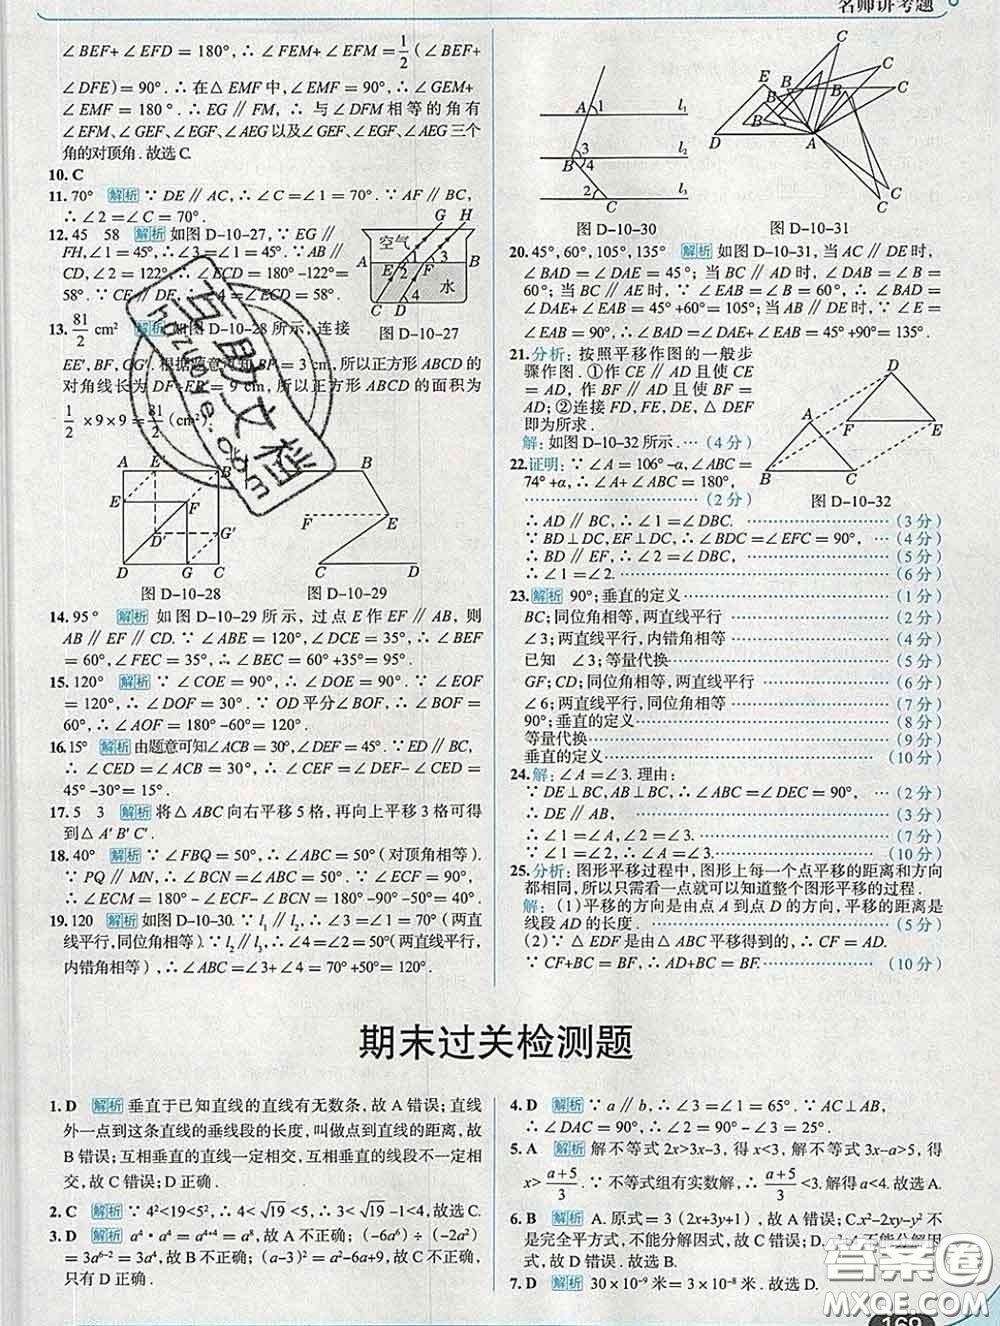 名师讲考题
∠BEF+∠EFD=180°,∴∠FEM+∠EFM=1/2(∠BEF+
∠DFE)=90°.∴在△EMF中,∠EMF=90°.∴∠GEM+
∠EMF=180°.∴EG∥FM,∴与∠DFM相等的角有
∠EFM,∠GEF,∠EGF,∠AEG以及∠GEF、∠EGF、∠AEG三个
角的对顶角.故选C.
10. C
11. 70° 解析 ∵DE∥AC,∴∠C=∠1=70°.∵AF∥BC,
∴∠2=∠C=70°.
12. 45 58 解析 如图D-10-27,∵EG∥
FH,∠1=45°,∴∠3=∠1=45°.∵AB∥
CD,∠2=122°,∴∠ECD=180°-122°=
58°.∵CE∥DF,∴∠4=∠ECD=58°.
空气
水
G H A E F B C D 1 2 3 4
图D-10-27
13. 81/2 cm² 解析 如图D-10-28所示,连接
EE′,BF,GG′.根据题意可知BF=3 cm,所以正方形ABCD的
对角线长为DF+BF=9 cm,所以正方形ABCD的面积为
1/2×9×9=81/2(cm²).
A E′ B E F D′ G′ D G C
图D-10-28
A B F E C D
图D-10-29
14. 95° 解析 如图D-10-29所示,过点E作EF∥AB,则
AB∥EF∥CD.∵∠ABE=120°,∠DCE=35°,∴∠BEF
=60°,∠FEC=35°,∴∠BEC=60°+35°=95°.
15. 120° 解析 ∵∠COE=90°,∴∠DOE=90°.∵∠EOF
=120°,∴∠DOF=30°.∵OD平分∠BOF,∴∠BOF
=60°,∴∠AOF=180°-60°=120°.
16. 15° 解析 由题意可知∠ACB=30°,∠DEF=45°.∵ED∥BC,
∴∠CED=∠ACB=30°,∴∠CEF=∠DEF-∠CED=
45°-30°=15°.
17. 5 3 解析 将△ABC向右平移5格,再向上平移3格可得
到△A′B′C′.
18. 40° 解析 ∵∠FBQ=50°,∴∠ABC=50°(对顶角相等).
∵PQ∥MN,∴∠BCN=∠ABC=50°.∵∠ECF=90°,
∴∠ECM=180°-∠ECF-∠BCN=180°-90°-50°=40°.
19. 120 解析 如图D-10-30.∵l₁∥l₂,∴∠3=∠1=70°(两直
线平行,同位角相等).∵l₂∥l₃,∴∠4=∠2=50°(两直线平行,
内错角相等),∴∠ABC=∠3+∠4=70°+50°=120°.
A 1 l₁ B 3 4 l₂ 2 C l₃
图D-10-30
E B B B B D A C C C C C
图D-10-31
20. 45°,60°,105°,135° 解析 如图D-10-31,当AC∥DE时,
∠BAD=∠DAE=45°;当BC∥AD时,∠DAB=∠B=
60°;当BC∥AE时,∵∠EAB=∠B=60°,∴∠BAD=
∠DAE+∠EAB=45°+60°=105°;当AB∥DE时,∵∠E=
∠EAB=90°,∴∠BAD=∠DAE+∠EAB=45°+90°=135°.
21. 分析:按照平移作图的一般步
骤作图.①作CE∥AD且使CE
=AD,作BF∥AD且使BF=
AD;②连接FD,FE,DE,△DEF
即为所求.
解:如图D-10-32所示.…(4分)
A B C D E F
图D-10-32
22. 证明:∵∠A=106°-α,∠ABC=
74°+α,∴∠A+∠ABC=180°,
…(2分)
∴AD∥BC,∴∠1=∠DBC.…(3分)
∵BD⊥DC,EF⊥DC,∴∠BDC=∠EFC=90°,…(4分)
∴BD∥EF,∴∠2=∠DBC,…(5分)
∴∠1=∠2.…(6分)
23. 解析 90°;垂直的定义…(1分)
BC;同位角相等,两直线平行…(2分)
∠3;两直线平行,内错角相等…(4分)
已知 ∠3;等量代换…(5分)
GF;CD;同位角相等,两直线平行…(6分)
∠6;两直线平行,同位角相等…(7分)
90°;垂直的定义…(8分)
等量代换…(9分)
垂直的定义…(10分)
24. 解:∠A=∠3.理由:
∵DE⊥BC,AB⊥BC,∴∠ABC=∠DEC=90°,
∴DE∥AB,…(3分)
∴∠1=∠A,∠2=∠3.…(7分)
∵∠1=∠2,∴∠A=∠3.…(10分)
25. 分析:图形平移过程中,图形上每一个点平移的距离和方向
都相同,所以只需看一点就可以知道整个图形平移的过程.
解:(1)平移的方向是由点A到点D的方向,平移的距离是
线段AD的长度.…(5分)
(2)∵△EDF是由△ABC平移得到的,∴CF=AD.
∵CF+BC=BF,∴AD+BC=BF.…(10分)
期末过关检测题
1. D 解析 垂直于已知直线的直线有无数条,故A错误;直线
外一点到这条直线的垂线段的长度,叫做点到直线的距离,故
B错误;互相垂直的直线一定相交,互相垂直的线段不一定相
交,故C错误;D正确.
2. C 解析 ∵4²<19<5²,∴4<√19<5,∴3<√19-1<4,故选C.
3. D 解析 a⁴·a⁴=a⁴⁺⁴=a⁸,故A不正确;(-6a⁶)÷(-2a²)
=3a⁶⁻²=3a⁴,故B不正确;(a-3)²=a²-6a+9,故C不正确,
只有D正确.
4. D 解析 ∵a∥b,∴∠1=∠ACB=65°.∵AC⊥AB,
∴∠DAC=90°,∴∠2=90°-∠ACB=25°.
5. A 解析 解不等式2x>3x-3,得x<3,解不等式3x-a>5,得
x>(a+5)/3.∵不等式组有实数解,∴(a+5)/3<3,解得a<4.故选A.
6. B 解析 A.原式=3(2x+3y+1),故A错误;C.x²-2xy-y²不
是完全平方式,不能分解因式,故C错误;D.不能分解因
式,故D错误.故选B.
7. D 解析 30×10⁻⁹米=3×10⁻⁸米.故选D.
答案圈
MXQE.COM
169
互助文档